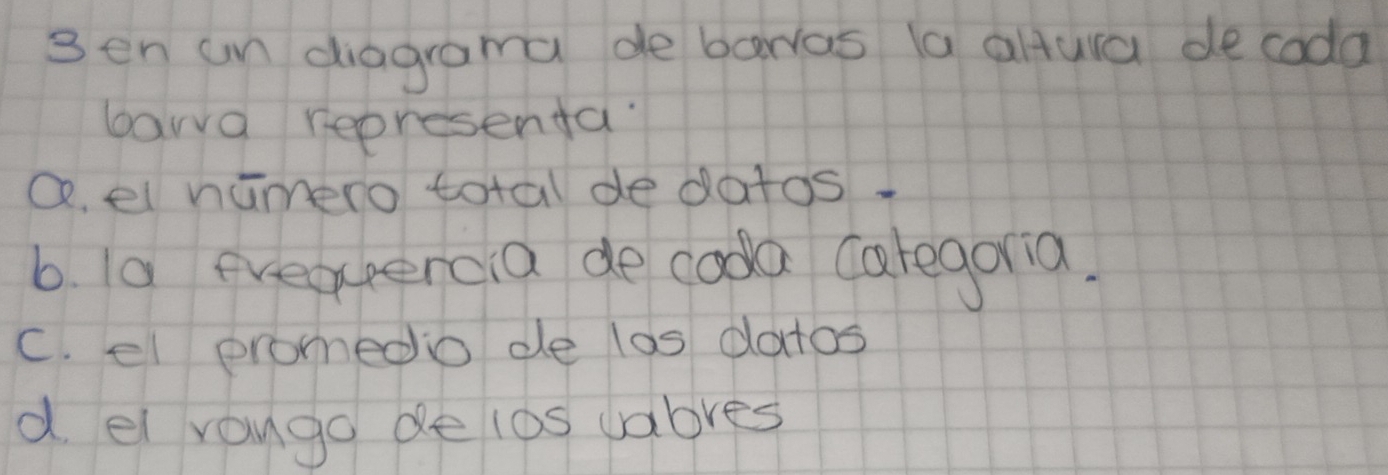 3 en un diagrama de barras la altura de cada
barra representa:
a. el número total de datos.
b. la frequencia de cada categoria.
c. el promedio de los datos
d. el rango de los valores